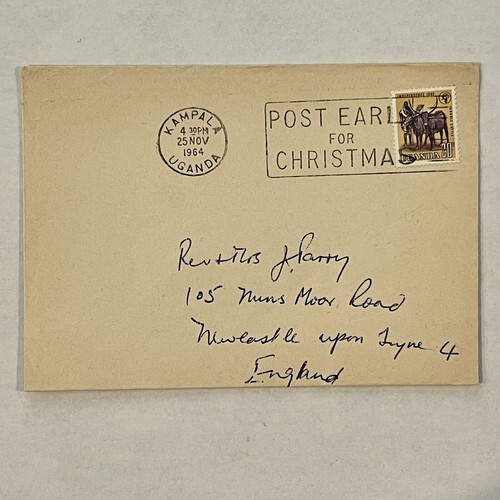 KAMPALA
4 30PM
25 NOV
1964
UGANDA
POST EARL
FOR
CHRISTMAS
INDEPENDENCE 1962
UGANDA 20
Rev & Mrs J. Parry
105 Nuns Moor Road
Newcastle upon Tyne 4
England